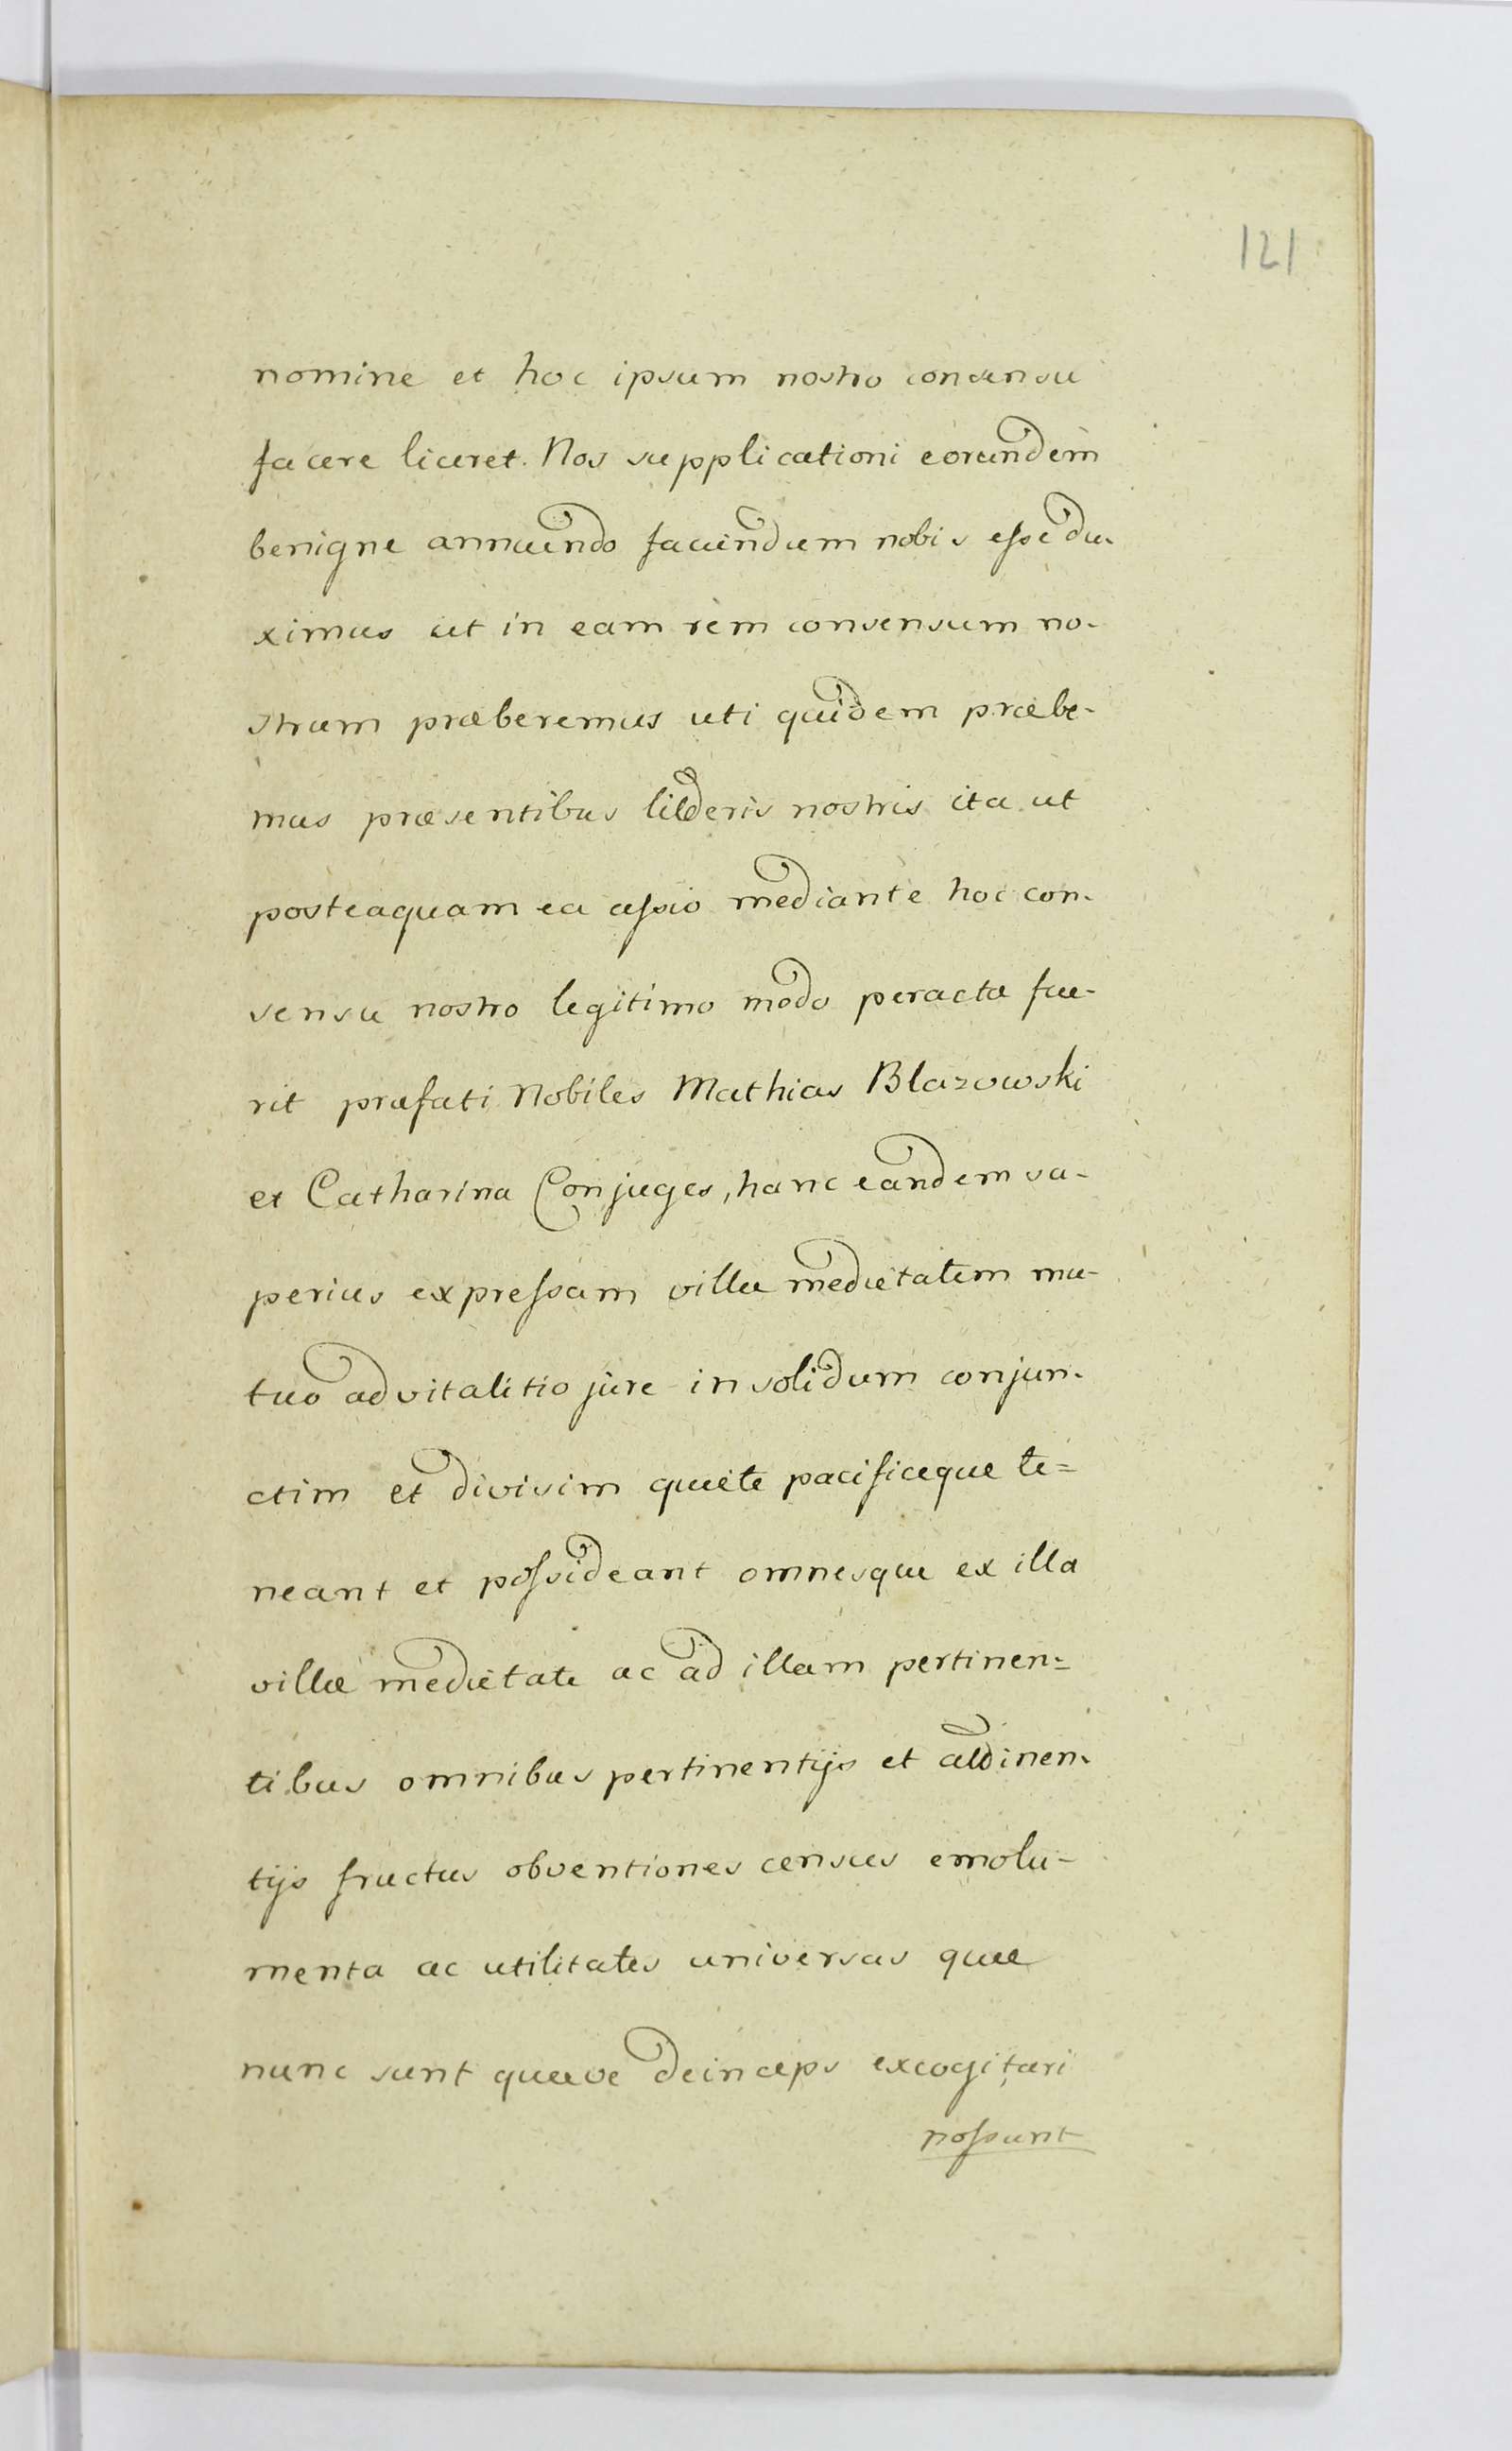 121
nomine et hoc ipsum nostro consensu
facere liceret. Nos supplicationi eorundem
benigne annuendo faciendum nobis esse du-
ximus ut in eam rem consensum no-
strum præberemus uti quidem præbe-
mus præsentibus litteris nostris ita ut
posteaquam ea cessio mediante hoc con-
sensu nostro legitimo modo peracta fue-
rit præfati Nobiles Mathias Blazowski
et Catharina Conjuges, hanc eandem su-
perius expressam villæ medietatem mu-
tuo advitalitio jure in solidum conjun-
ctim et divisim quiete pacificeque te=
neant et possideant omnesque ex illa
villæ medietate ac ad illam pertinen=
tibus omnibus pertinentijs et attinen-
tijs fructus obventiones census emolu-
menta ac utilitates universas quæ
nunc sunt quæve deinceps excogitari
possunt